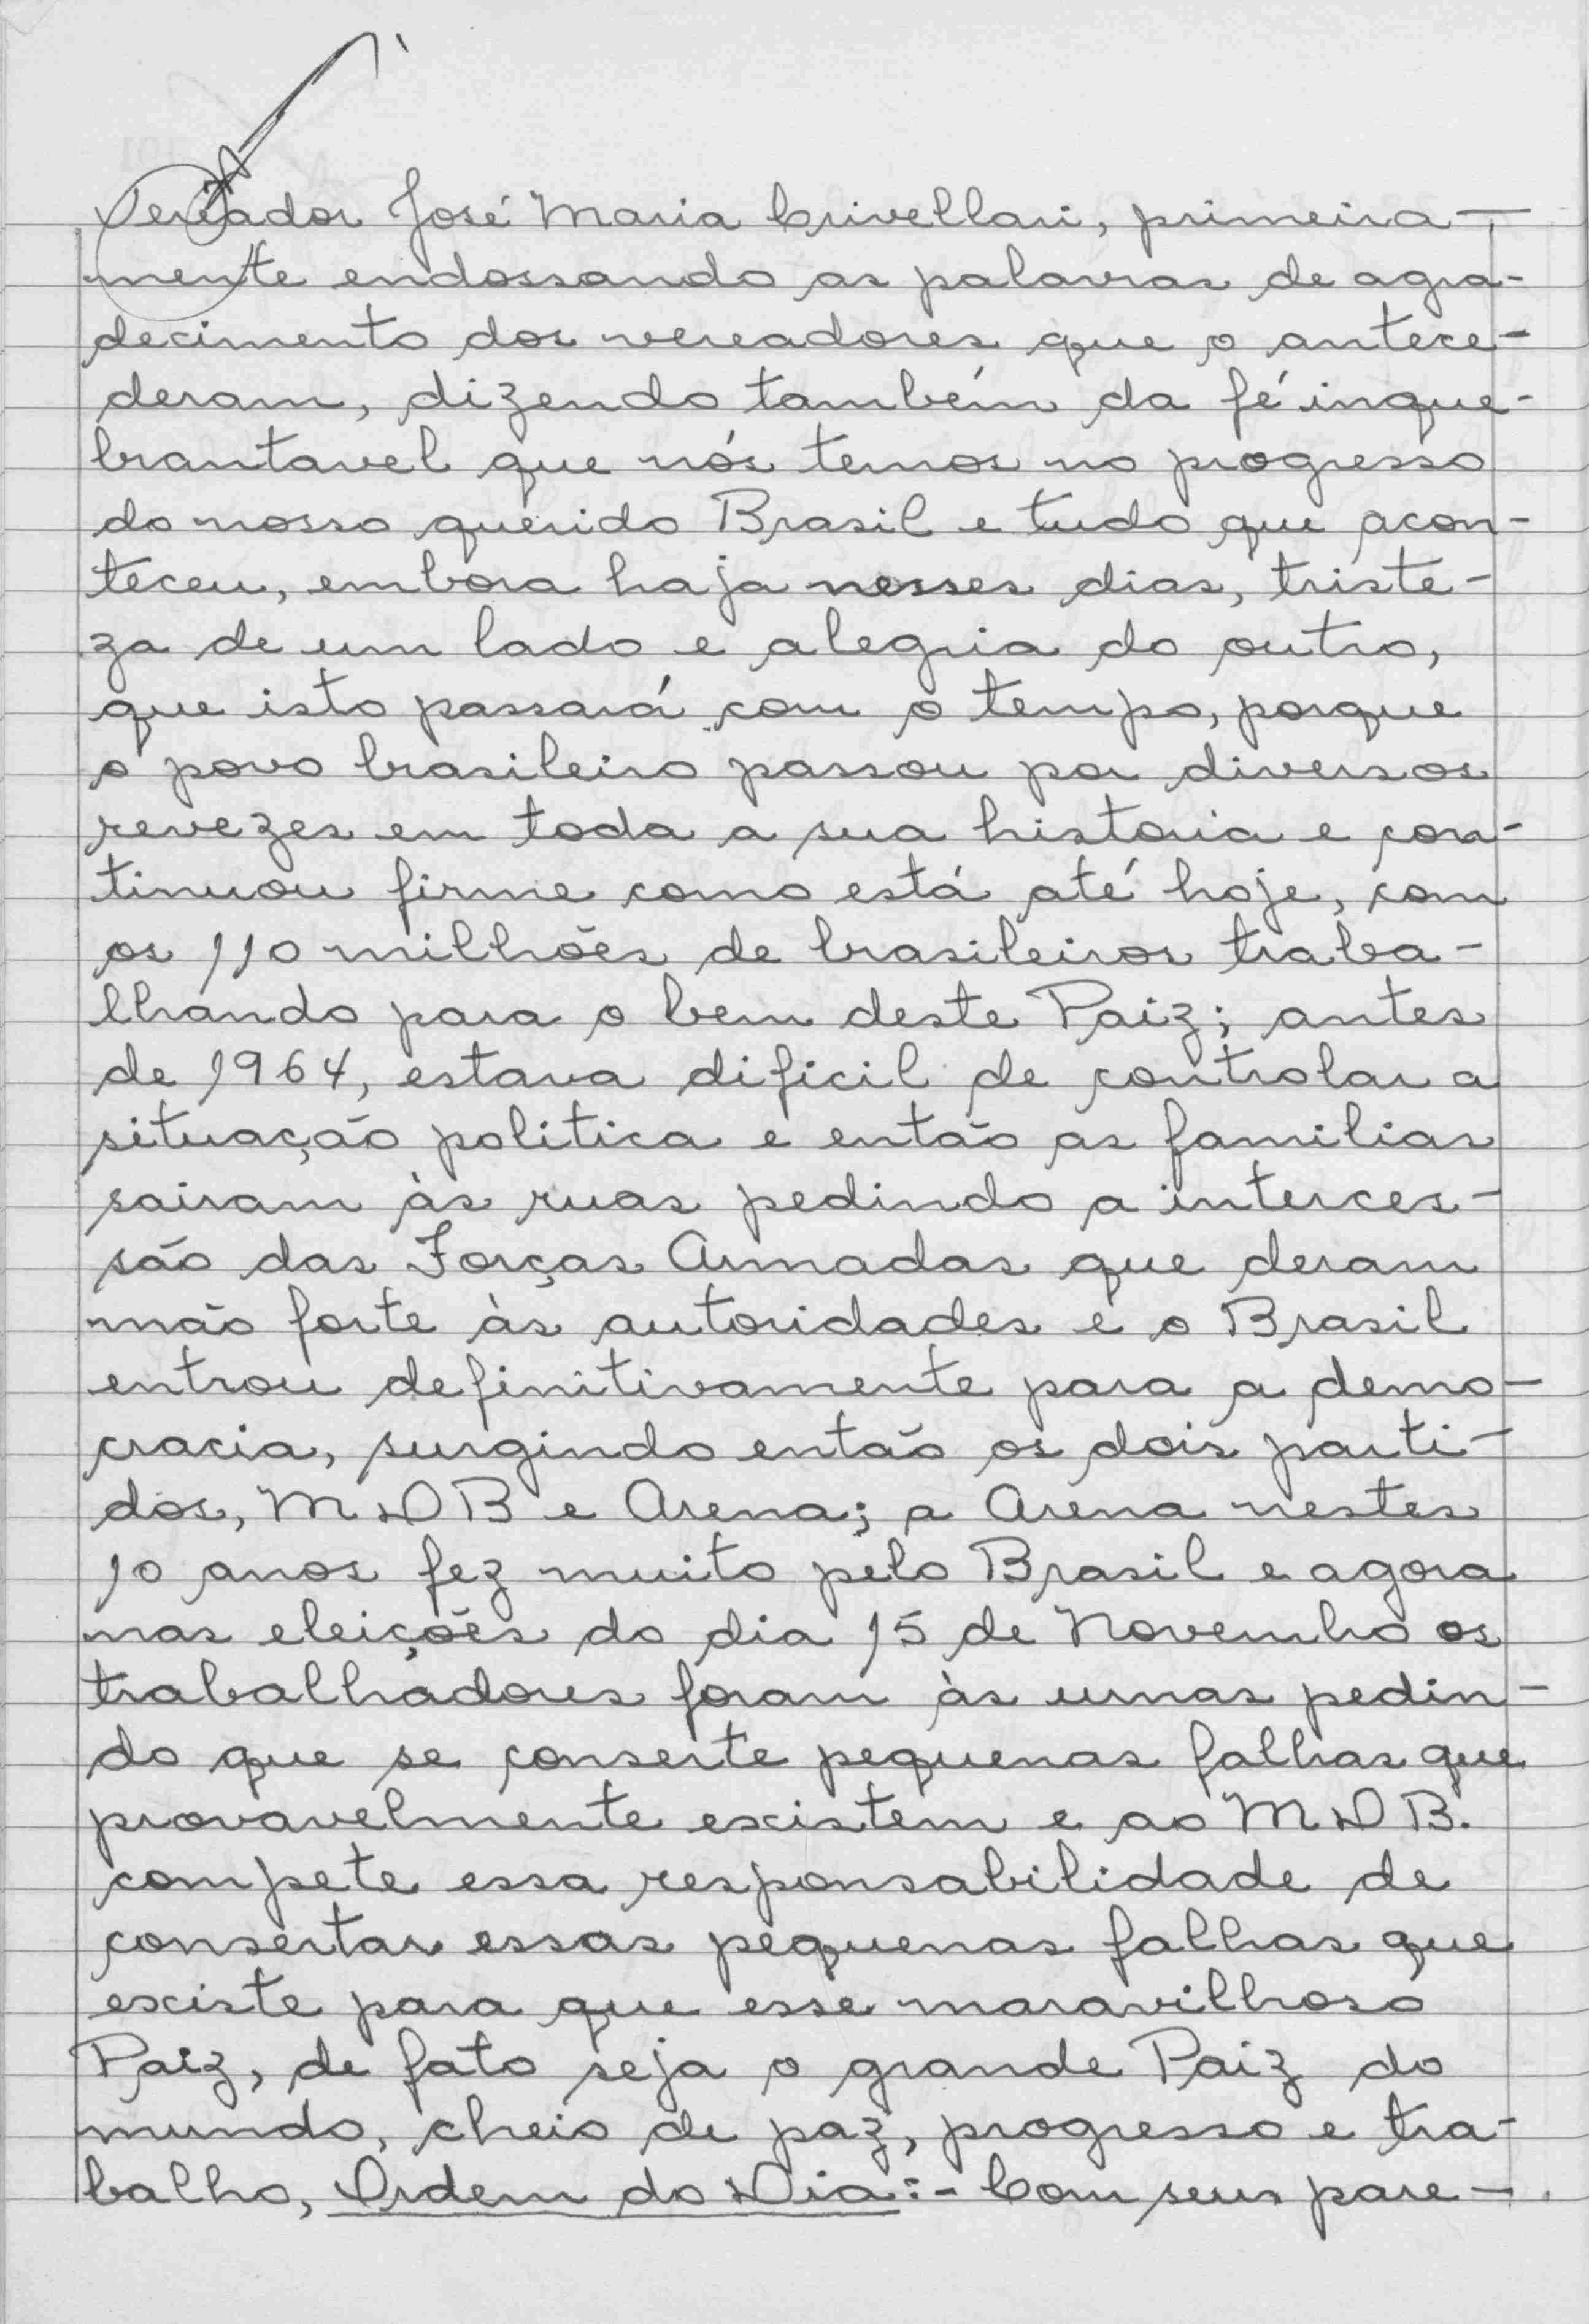 Vereador José Maria Crivellari, primeira-
mente endossando as palavras de agra-
decimento dos vereadores que o antece-
deram, dizendo também da fé inque-
brantavel que nós temos no progresso
do nosso querido Brasil e tudo que acon-
teceu, embora haja nesses dias, triste-
za de um lado e alegria do outro,
que isto passará com o tempo, porque
o povo brasileiro passou por diversos
revezes em toda a sua historia e con-
tinuou firme como está até hoje, com
os 110 milhões de brasileiros traba-
lhando para o bem deste Paiz; antes
de 1964, estava dificil de controlar a
situação politica e então as familias
sairam às ruas pedindo a interces-
são das Forças Armadas que deram
mão forte às autoridades e o Brasil
entrou definitivamente para a demo-
cracia, surgindo então os dois parti-
dos, MDB e Arena; a Arena nestes
10 anos fez muito pelo Brasil e agora
nas eleições do dia 15 de Novembro os
trabalhadores foram às urnas pedin-
do que se conserte pequenas falhas que
provavelmente existem e ao MDB.
compete essa responsabilidade de
consertar essas pequenas falhas que
existe para que esse maravilhoso
Paiz, de fato seja o grande Paiz do
mundo, cheio de paz, progresso e tra-
balho, Ordem do Dia:- Com seus pare-